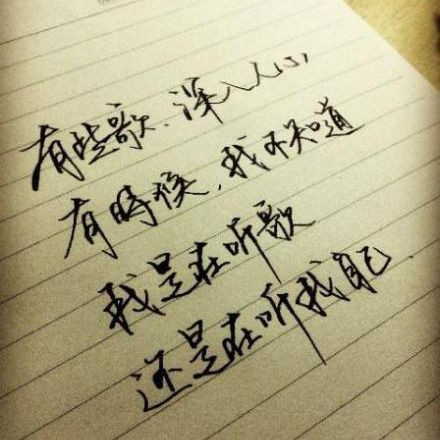 有些歌、深入人心,
有時候,我不知道
我是在听歌
还是在听我自己.